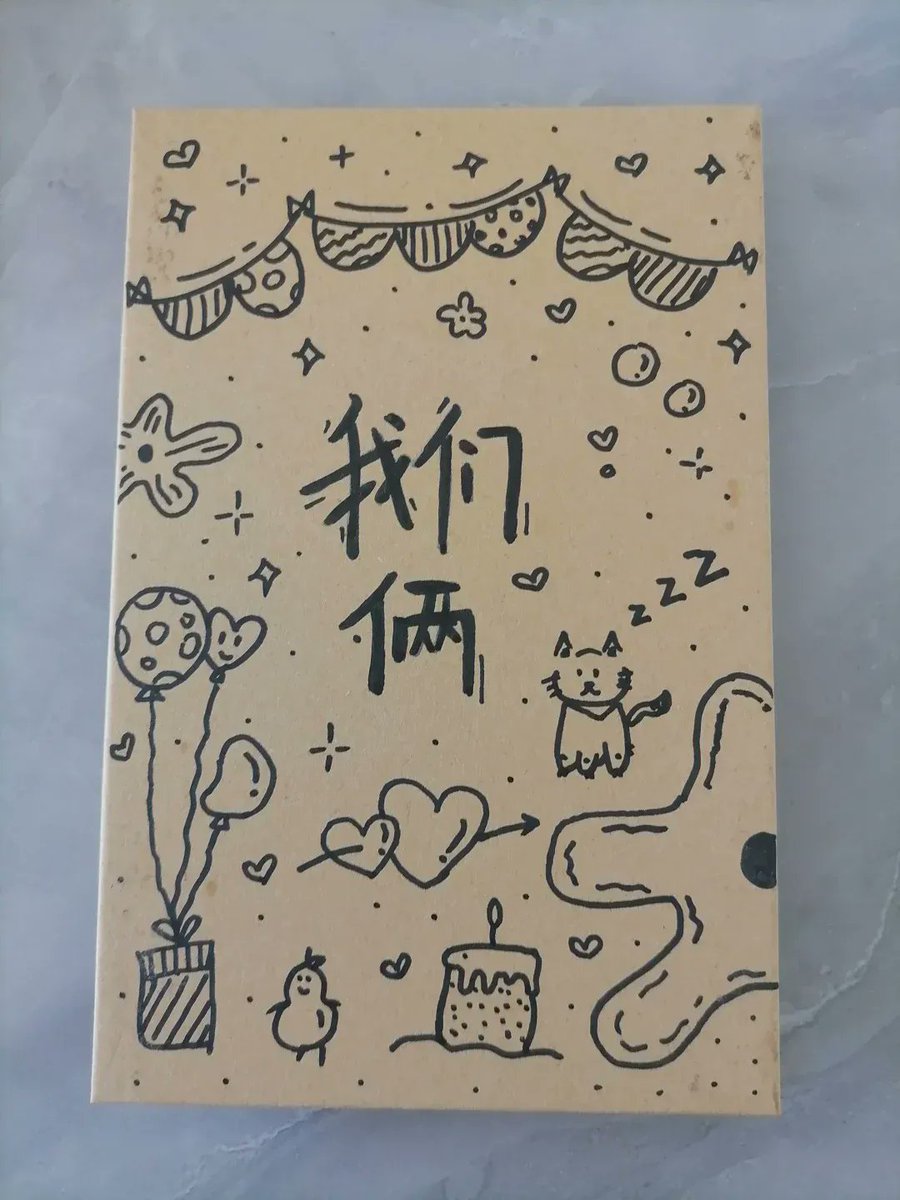 我们
俩
z z z